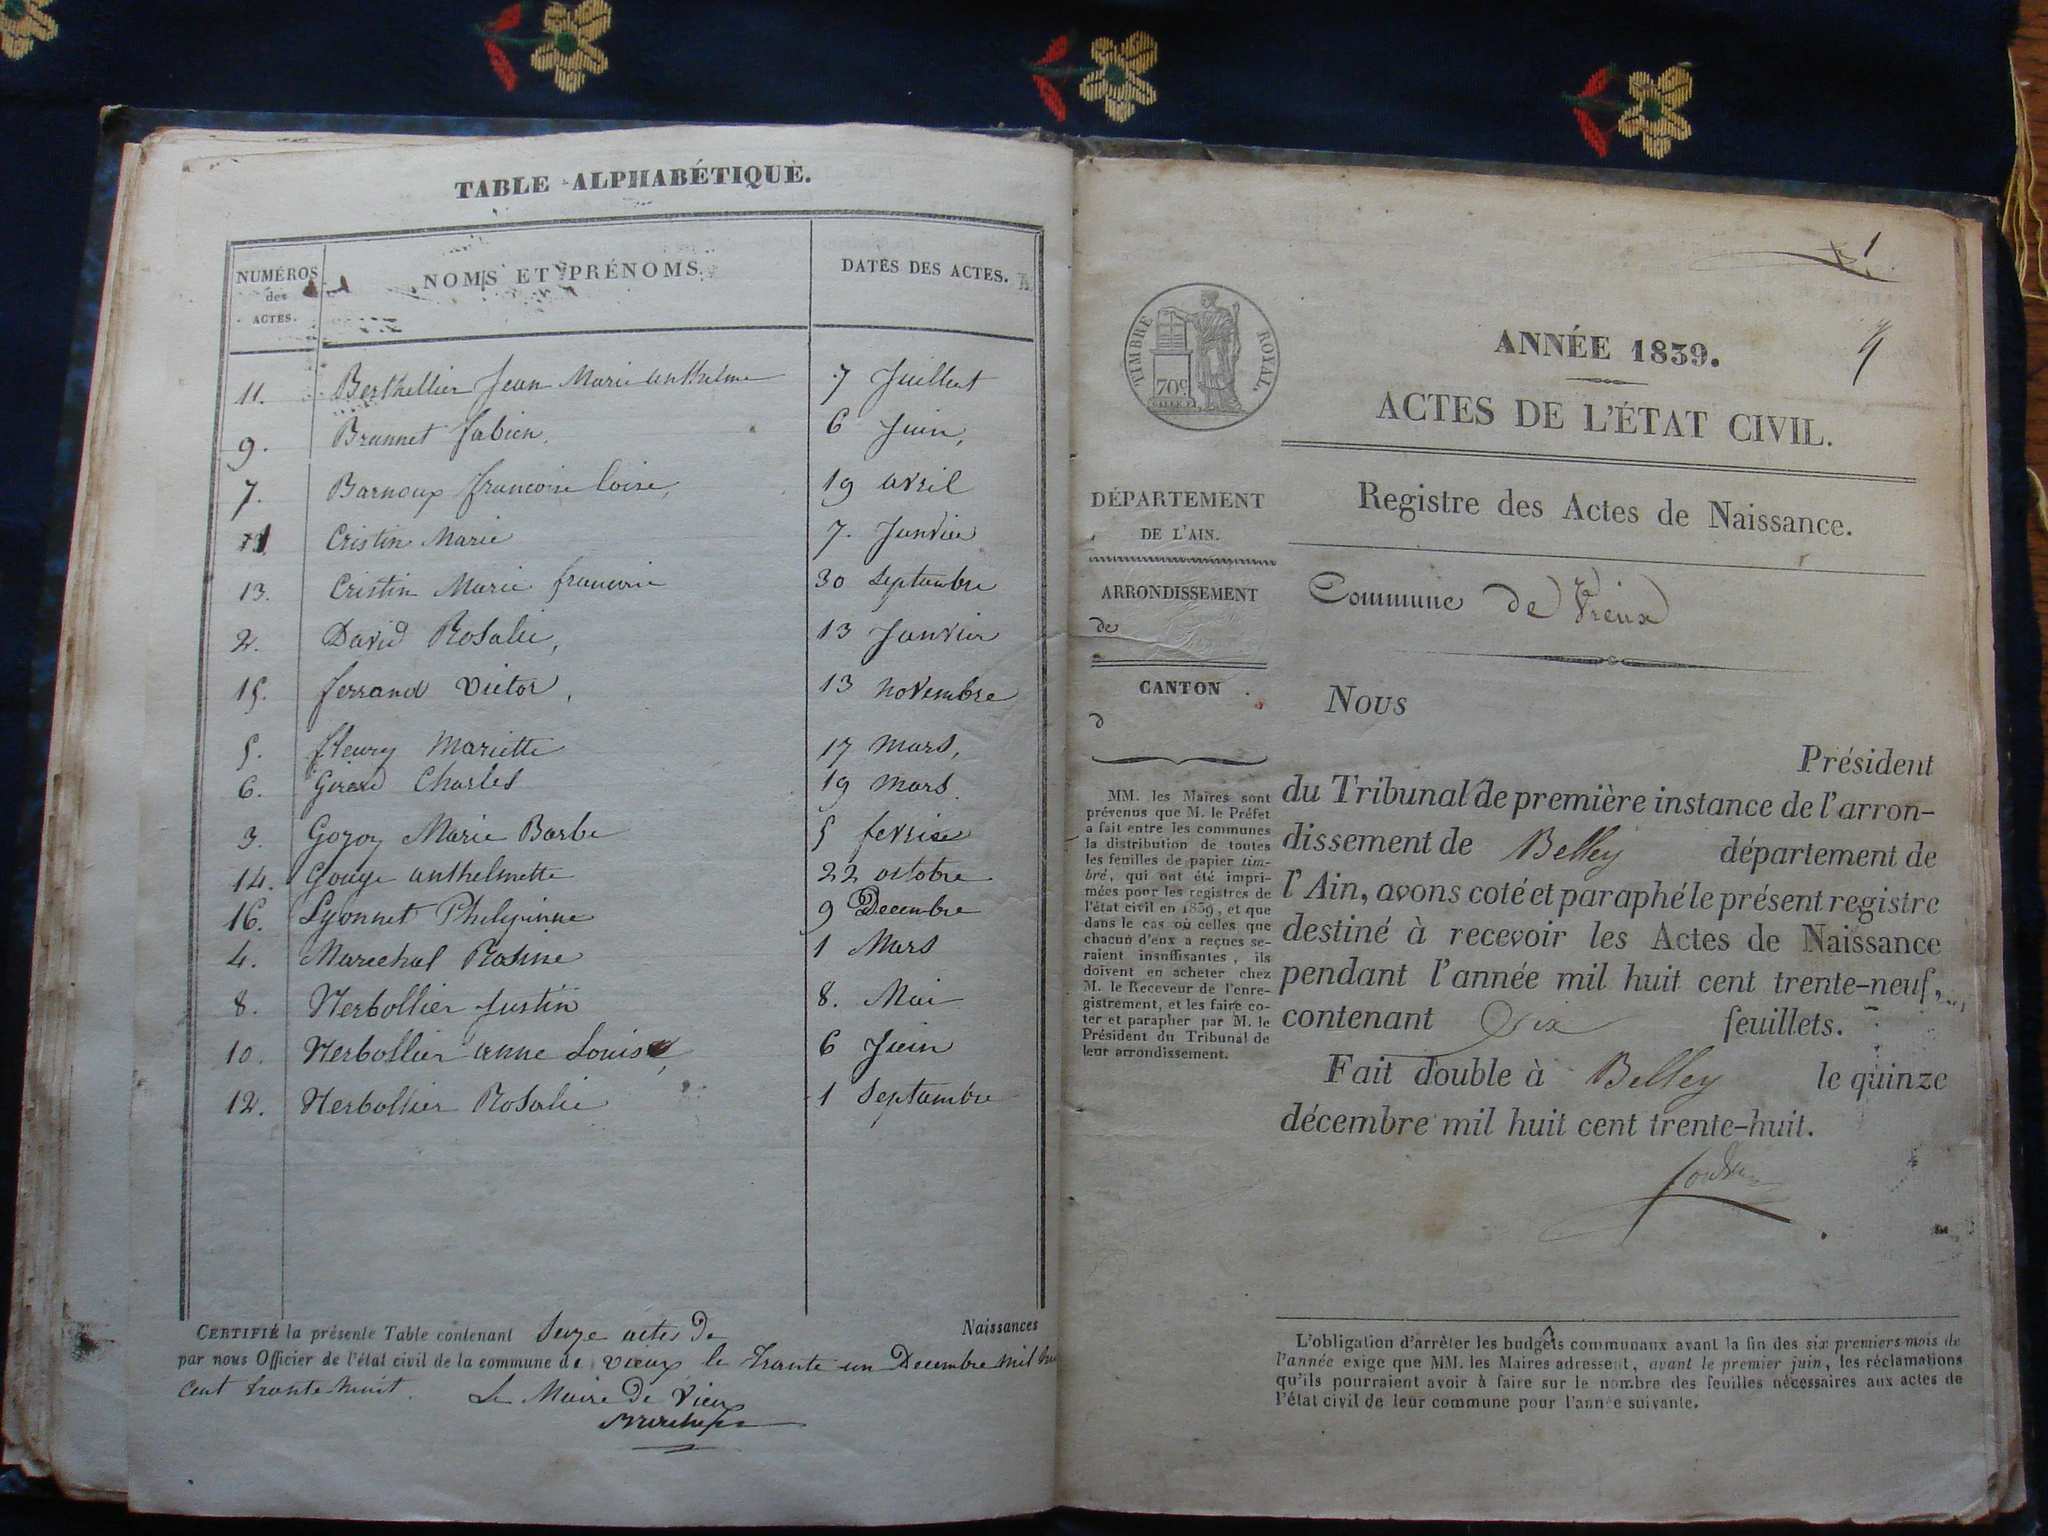 TABLE ALPHABÉTIQUE.
NUMÉROS des ACTES. NOMS ET PRÉNOMS. DATES DES ACTES.
11. Berthellier Jean Marie anthelme 7 Juillet
9. Brunnet fabien. 6 Juin,
7. Barnoux francoise loise, 19 avril
1. Cristin Marie 7. Janvier
13. Cristin Marie francoise 30 Septembre
2. David Rosalie, 13 Janvier
15. ferrand victor, 13 novembre
5. fleury Mariette 17 Mars,
6. Girard Charles 19 Mars.
3. Gozoy Marie Barbe 5 fevrier
14. Gouye anthelmette 22 octobre
16. Lyonnet Philipinne 9 Decembre
4. Marechal Rosine 1 Mars
8. Nerbollier Justin 8. Mai
10. Nerbollier anne Louise, 6 Juin
12. Nerbollier Rosalie 1 Septembre
CERTIFIÉ la présente Table contenant Seize actes de Naissances
par nous Officier de l'état civil de la commune de vieux le trante un Decembre mil hui
cent trante huit.
Le Maire de Vieu
1
ANNÉE 1839.
TIMBRE ROYAL.
70c
ACTES DE L'ÉTAT CIVIL.
DÉPARTEMENT
DE L'AIN.
ARRONDISSEMENT
de
CANTON
d
MM. les Maires sont
prévenus que M. le Préfet
a fait entre les communes
la distribution de toutes
les feuilles de papier tim-
bré, qui ont été impri-
mées pour les registres de
l'état civil en 1839, et que
dans le cas où celles que
chacun d'eux a reçues se-
raient insuffisantes, ils
doivent en acheter chez
M. le Receveur de l'enre-
gistrement, et les faire co-
ter et parapher par M. le
Président du Tribunal de
leur arrondissement.
Registre des Actes de Naissance.
Commune de Vieux
Nous
Président
du Tribunal de première instance de l'arron-
dissement de Belley département de
l'Ain, avons coté et paraphé le présent registre
destiné à recevoir les Actes de Naissance
pendant l'année mil huit cent trente-neuf,
contenant Six feuillets.
Fait double à Belley le quinze
décembre mil huit cent trente-huit.
L'obligation d'arrêter les budgets communaux avant la fin des six premiers mois de
l'année exige que MM. les Maires adressent, avant le premier juin, les réclamations
qu'ils pourraient avoir à faire sur le nombre des feuilles nécessaires aux actes de
l'état civil de leur commune pour l'année suivante.